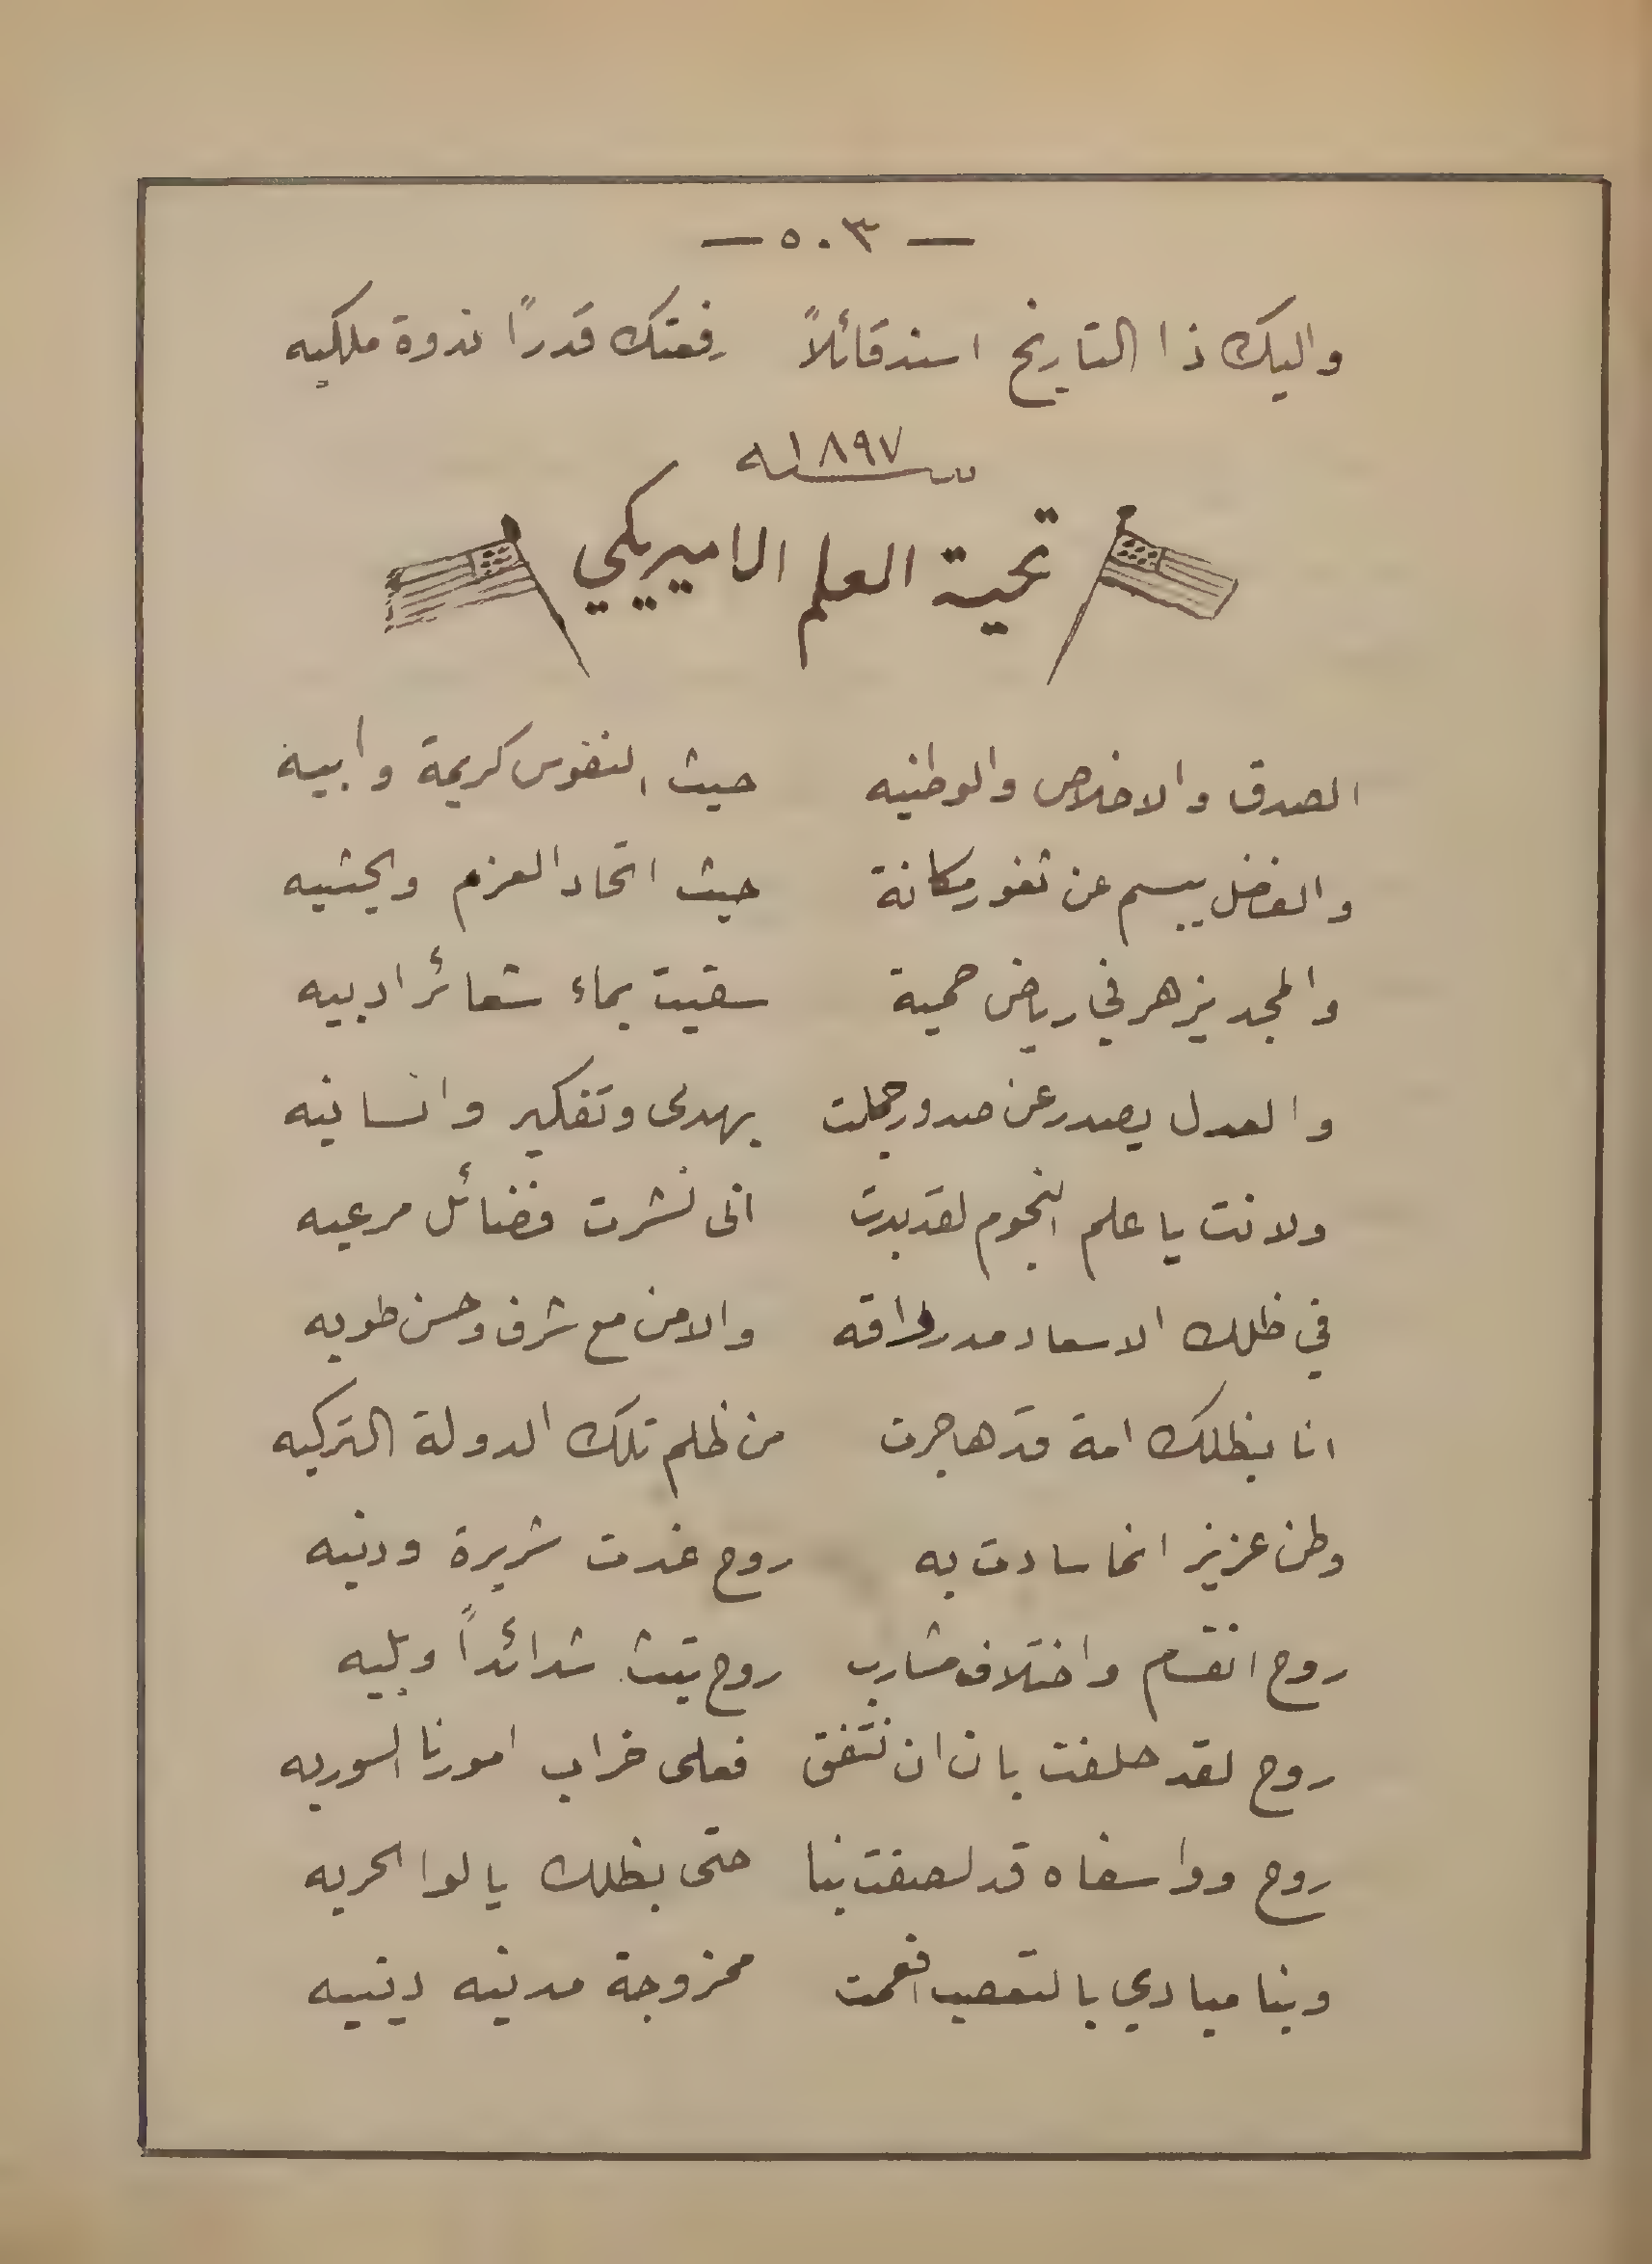 — ٥٠٣ —
واليك ذا التاريخ اسند قائلاً رفعتك قدراً ندوة ملكيه
سنة ١٨٩٧
تحية العلم الاميريكي
الصدق والاخلاص والوطنيه حيث النفوس كريمة وابية
والفضل يبسم عن ثغور مكانة حيث اتحاد العزم والجنسيه
والمجد يزهر في رياض حمية سقيت بماء شعائر ادبيه
والعدل يصدر عن صدور جملت بهدى وتفكير وانسانيه
ولانت يا علم النجوم لقد بدت انى نشرت فضائل مرعيه
في ظلك الاسعاد مد رواقه والامن مع شرف وحسن طويه
انا بظلك امة قد هاجرت من ظلم تلك الدولة التركيه
وطن عزيز انما سادت به روح غدت شريرة ودنيه
روح انقسام واختلاف مشارب روح تبث شدائداً وبليه
روح لقد حلفت بان ان نتفق فعلى خراب امورنا السوريه
روح ووا سفاه قد لصقت بنا حتى بظلك يا لوا الحريه
وبنا مبادي بالتعصب افعمت ممزوجة مدنيه دينيه